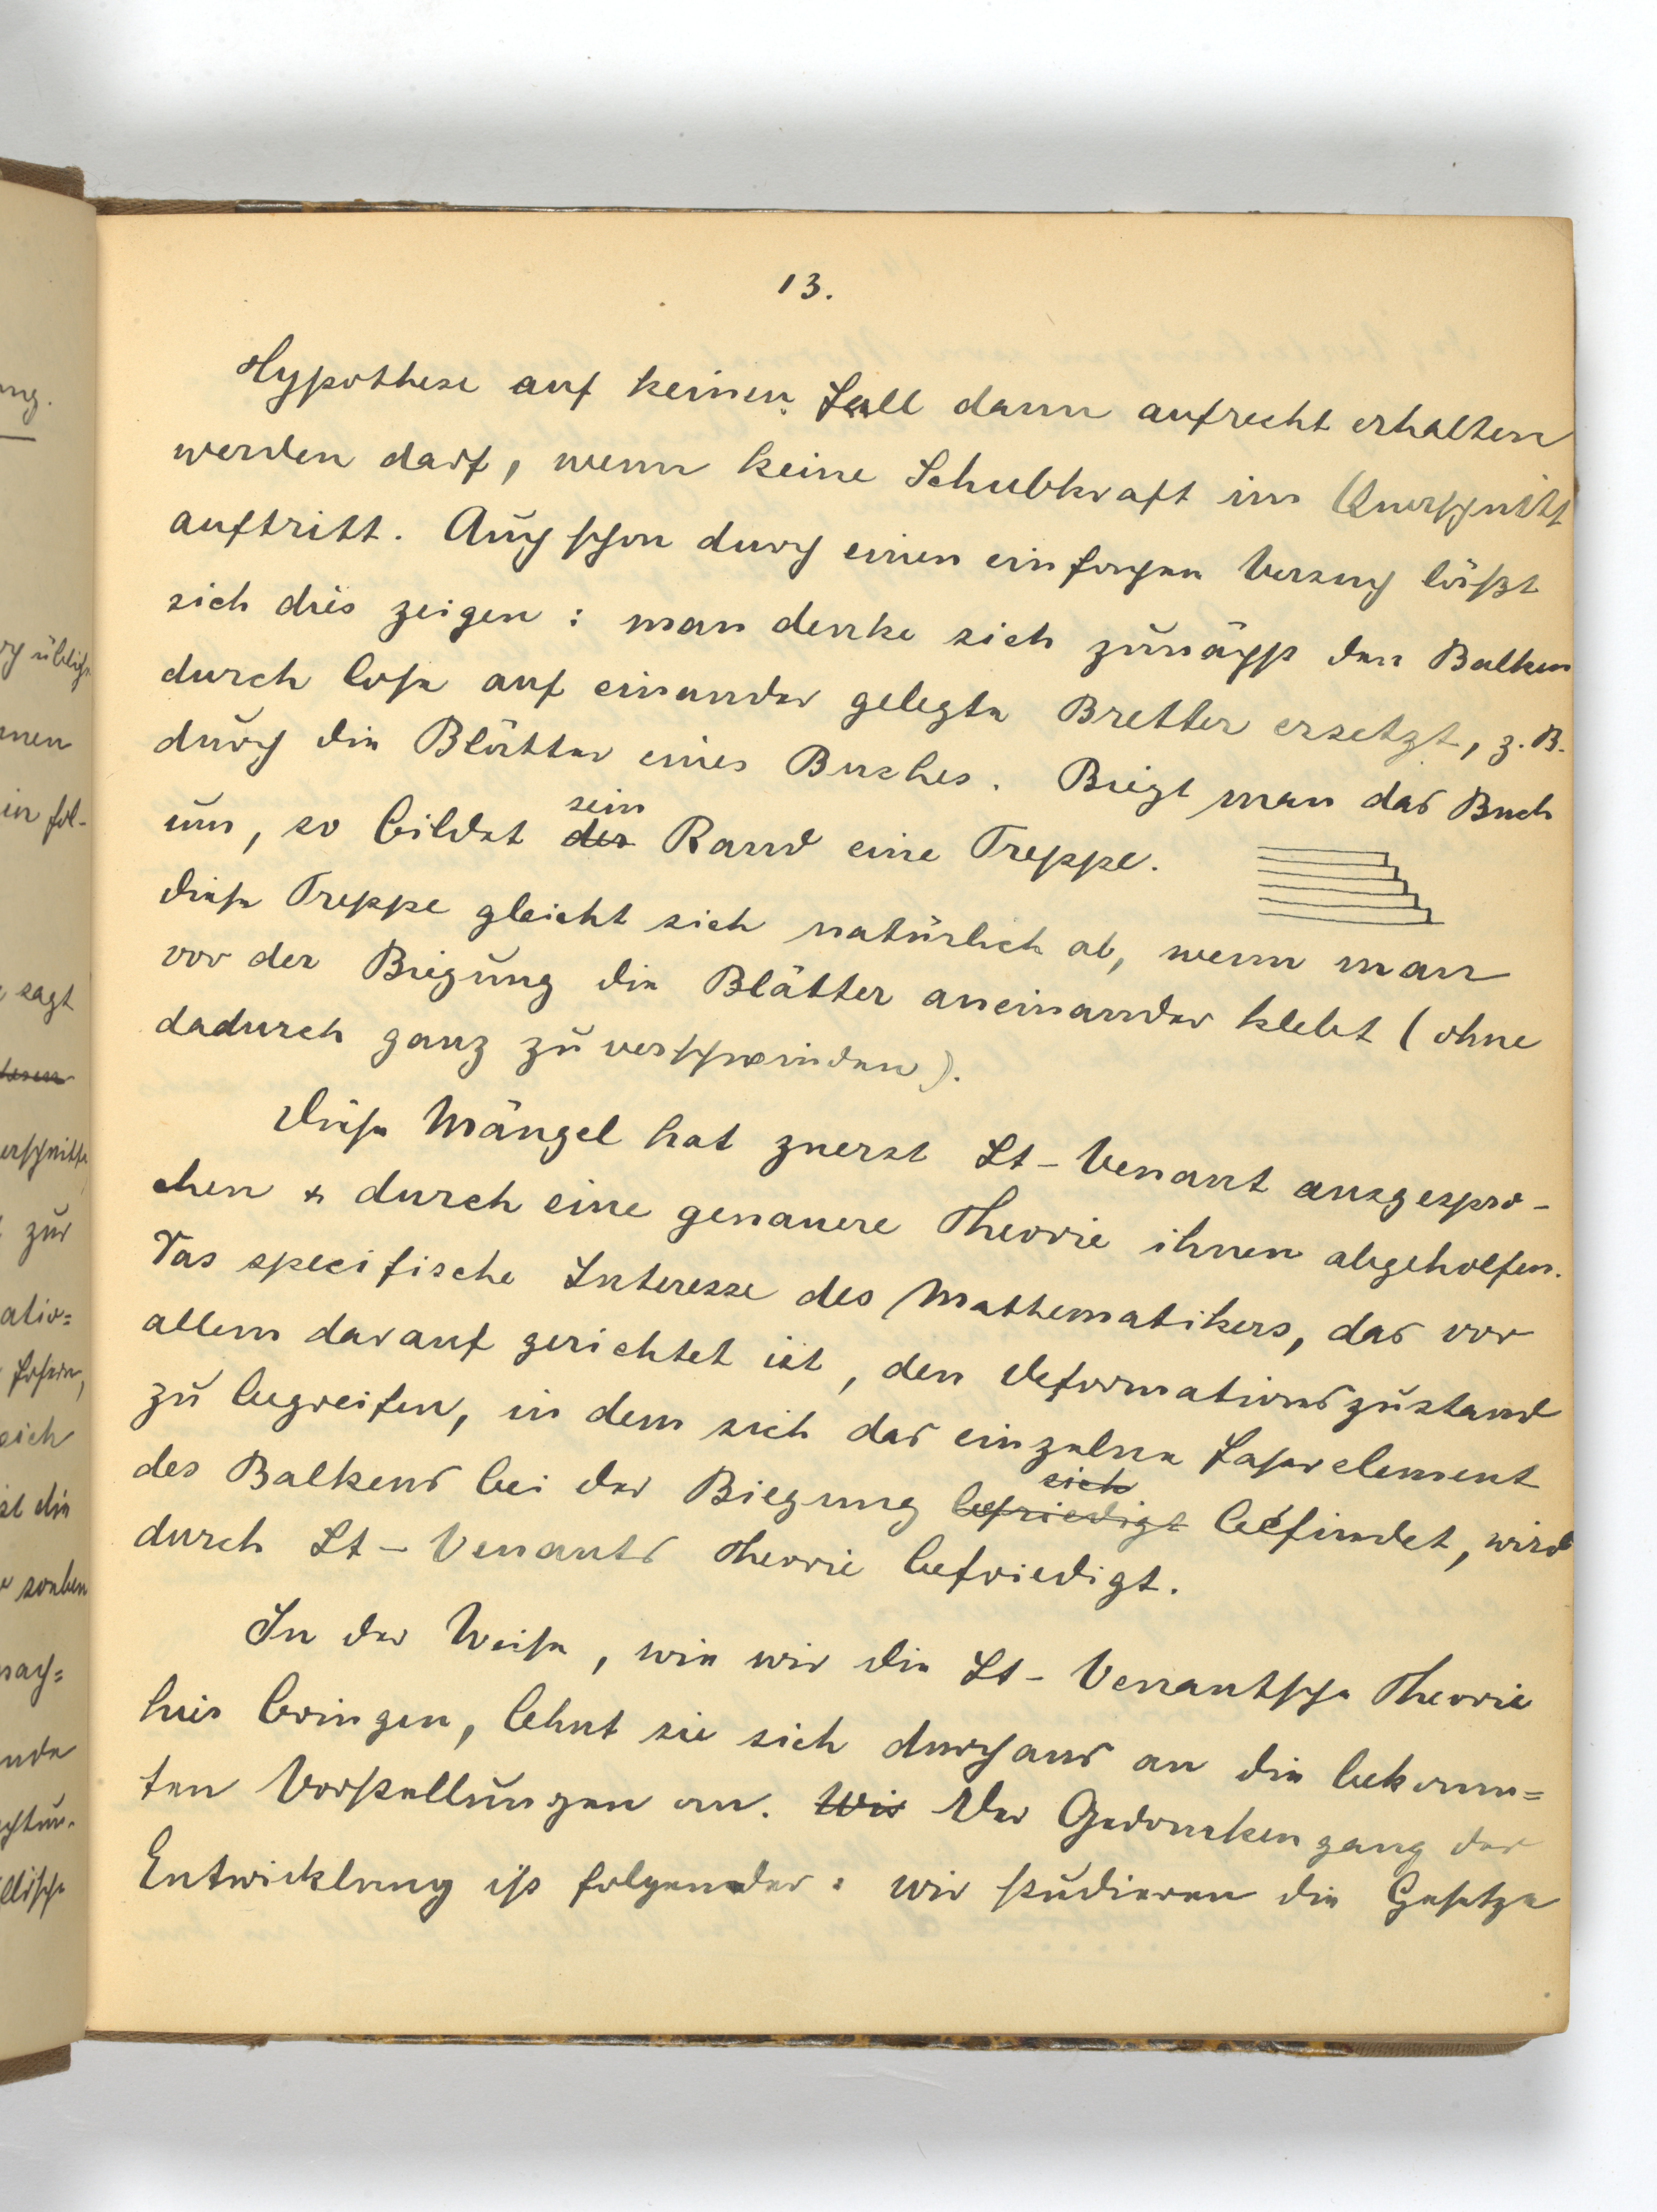 13.
Hypothese auf keinen Fall dann aufrecht erhalten
werden darf, wenn keine Schubkraft im Querschnitt
auftritt. Auch schon durch einen einfachen Versuch läßt
sich dies zeigen: man denke sich zunächst den Balken
durch lose auf einander gelegte Bretter ersetzt, z. B.
durch die Blätter eines Buches. Biegt man das Buch
sein
um, so bildet der Rand eine Treppe.
diese Treppe gleicht sich natürlich ab, wenn man
vor der Biegung die Blätter aneinander klebt (ohne
dadurch ganz zu verschwinden).
Diese Mängel hat zuerst St-Venant ausgespro-
chen & durch eine genauere Theorie ihnen abgeholfen.
Das specifische Interesse des Mathematikers, das vor
allem darauf gerichtet ist, den Deformationszustand
zu begreifen, in dem sich das einzelne Faserelement
sich
des Balkens bei der Biegung befriedigt befindet, wird
durch St-Venants Theorie befriedigt.
In der Weise, wie wir die St-Venantsche Theorie
hier bringen, lehnt sie sich durchaus an die bekann=
ten Vorstellungen an. Wir Der Gedankengang der
Entwicklung ist folgender: wir studieren die Gesetze
ung.
üblich
nen
in fol-
sagt
zur
atio=
sich
ist die
soeben
nach=